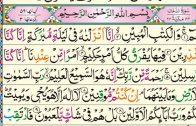 بِسْمِ اللّٰهِ الرَّحْمٰنِ الرَّحِيْمِ
حٰمٓ وَالْكِتٰبِ الْمُبِيْنِ اِنَّآ اَنْزَلْنٰهُ فِيْ لَيْلَةٍ مُّبٰرَكَةٍ اِنَّا كُنَّا
مُنْذِرِيْنَ فِيْهَا يُفْرَقُ كُلُّ اَمْرٍ حَكِيْمٍ اَمْرًا مِّنْ عِنْدِنَا اِنَّا كُنَّا
مُرْسِلِيْنَ رَحْمَةً مِّنْ رَّبِّكَ اِنَّهٗ هُوَ السَّمِيْعُ الْعَلِيْمُ رَبِّ السَّمٰوٰتِ
وَالْاَرْضِ وَمَا بَيْنَهُمَا اِنْ كُنْتُمْ مُّوْقِنِيْنَ لَآ اِلٰهَ اِلَّا هُوَ يُحْيٖ وَيُمِيْتُ
رَبُّكُمْ وَرَبُّ اٰبَآئِكُمُ الْاَوَّلِيْنَ بَلْ هُمْ فِيْ شَكٍّ يَّلْعَبُوْنَ